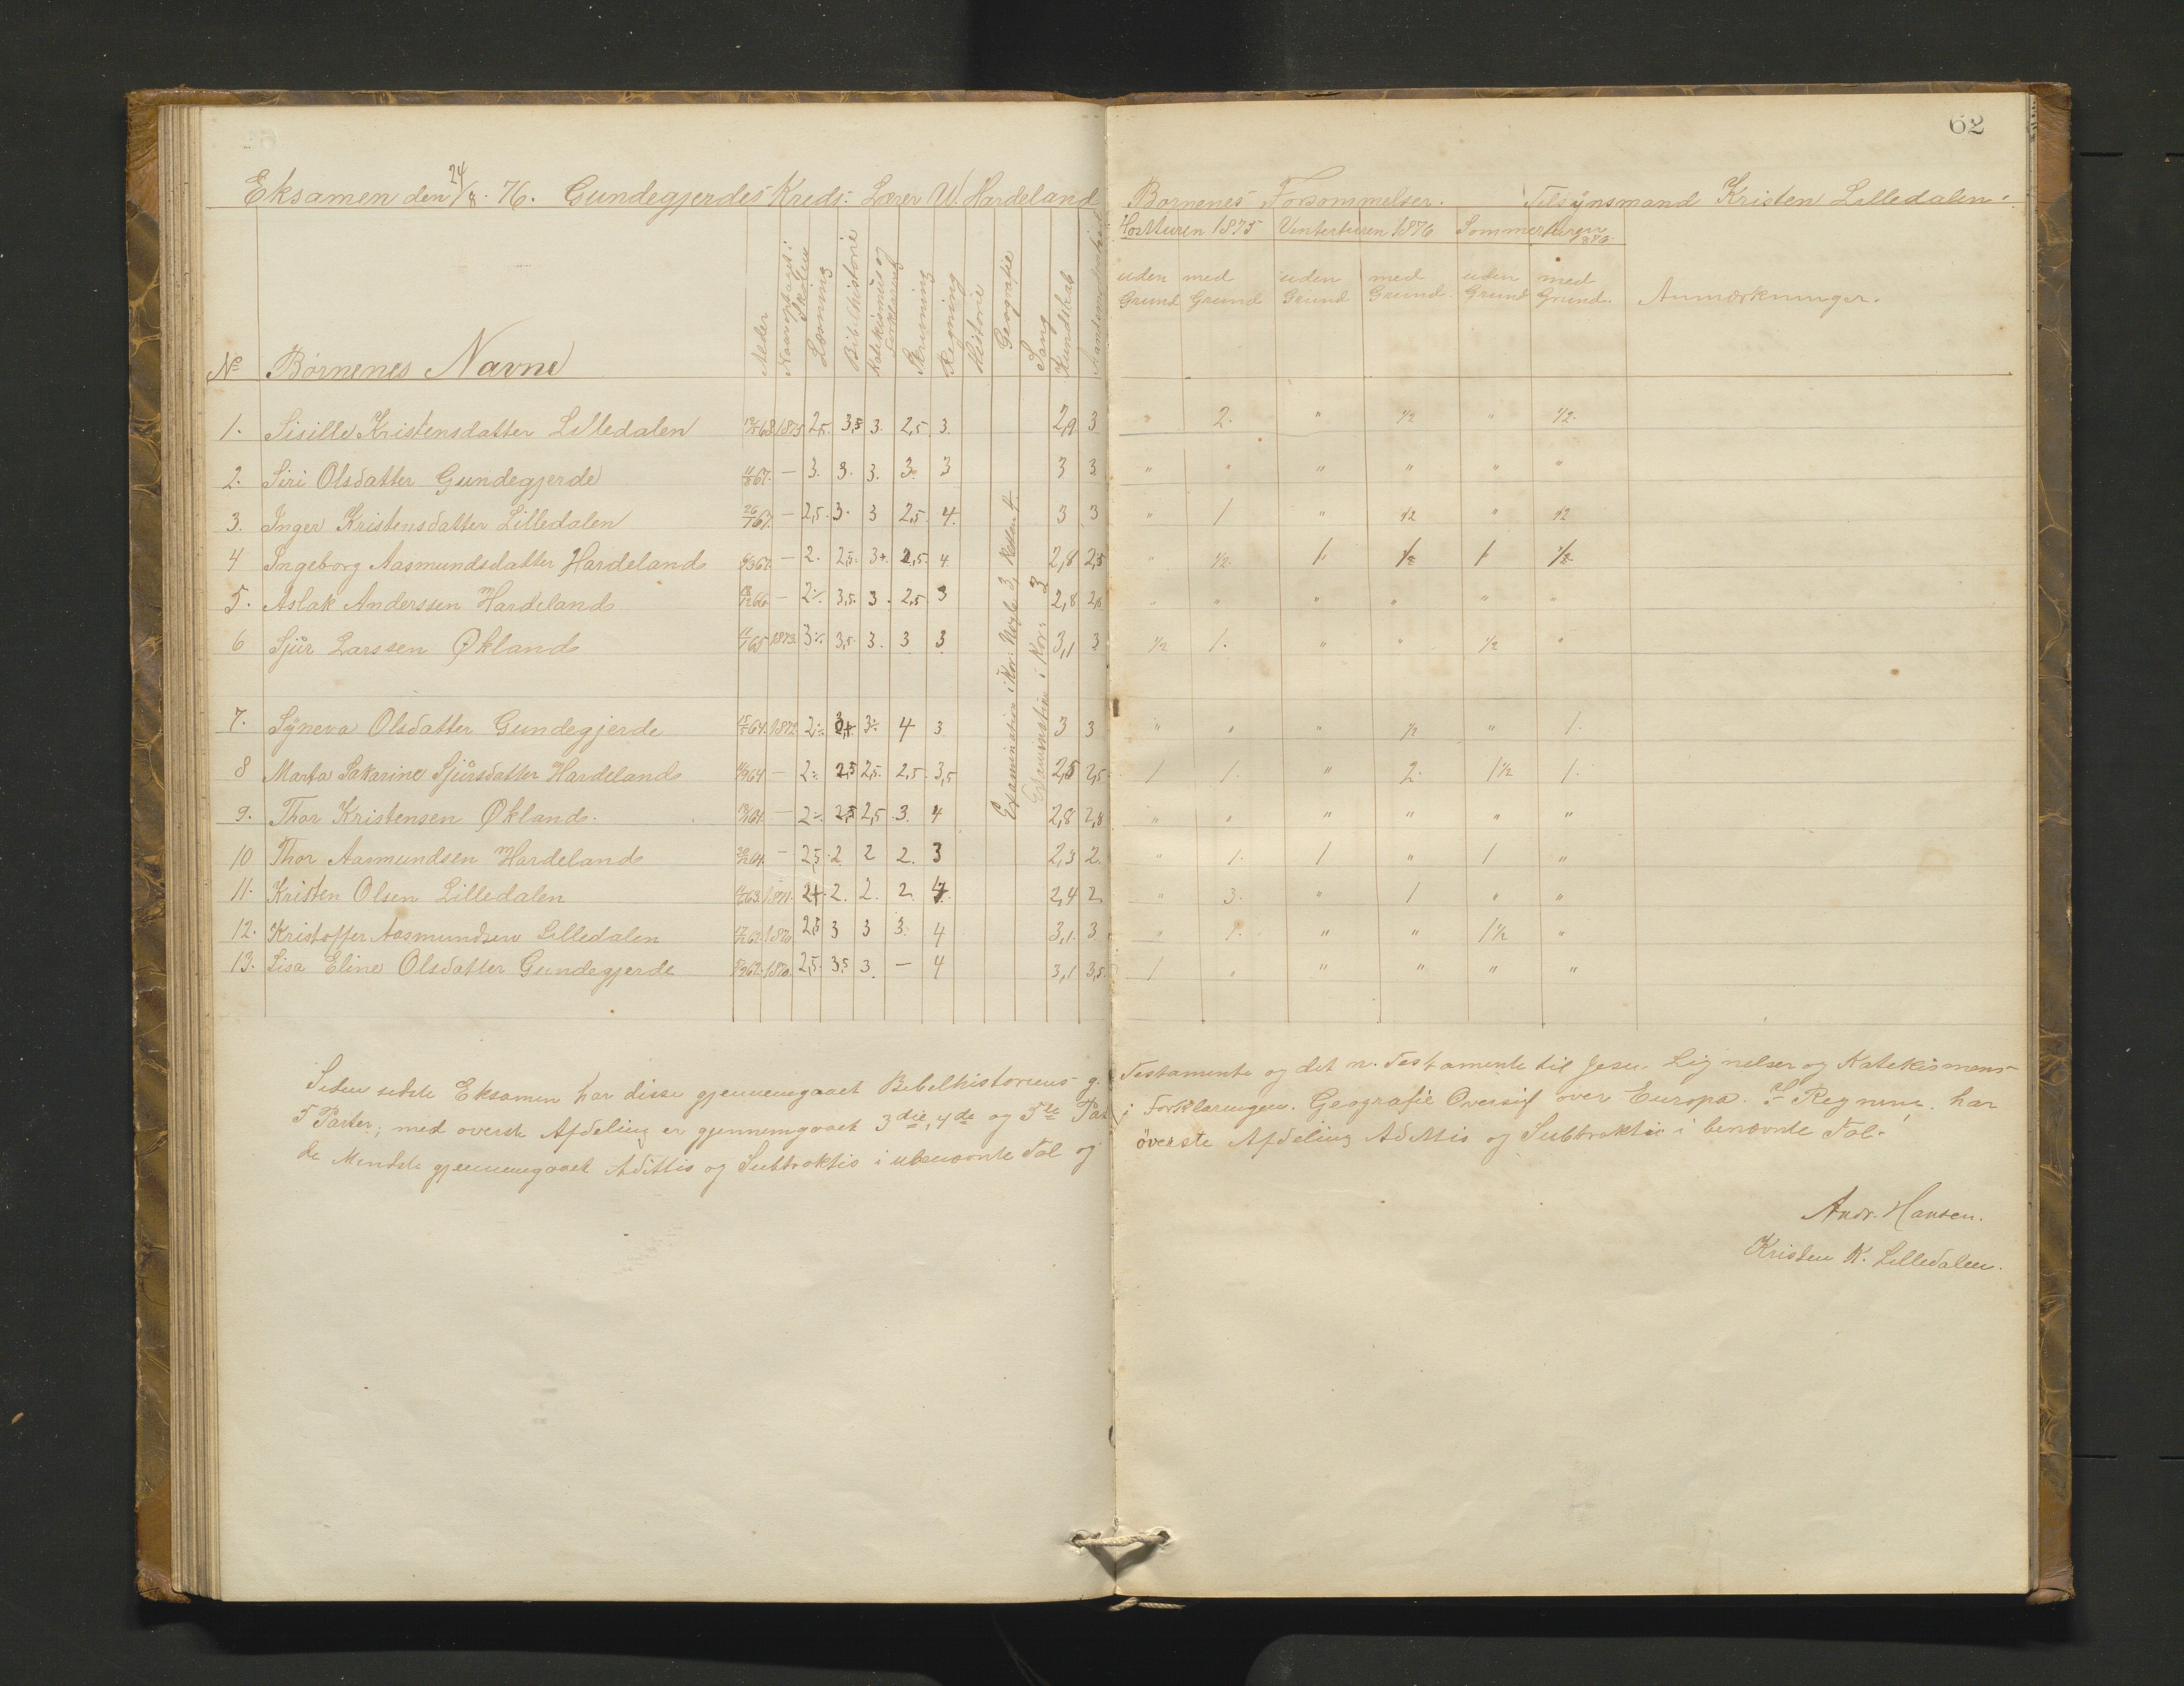 62
Eksamen den 24/8. 76. Gundegjerdes Kreds. Lærer W. Hardeland
Børnenes Forsømmelser. Tilsynsmand Kristen Lilledalen.
Høstturen 1875 Vinterturen 1876 Sommerturen 1876
uden Grund med Grund uden Grund med Grund uden Grund med Grund. Anmærkninger.
No Börnenes Navne Alder Naar optaget i Skolen Læsning Bibelhistorie Katekismus og Forklaring Skrivning Regning Historie Geografie Sang Kundskab
1. Sisille Kristensdatter Lilledalen 1875 2,5. 3,5 3. 2,5 3. 2,9 3 " 2. " 1/2 " 1/2.
2. Siri Olsdatter Gundegjerde 11/8 67. — 3. 3. 3. 3. 3 3 3 " " " " " "
3. Inger Kristensdatter Lilledalen 26/7 67. — 2,5. 3. 3 2,5. 4. 3 3 " 1 " 1/2 " 1/2
4 Ingeborg Aasmundsdatter Hardeland 6/3 67. — 2. 2,5. 3+. 2,5. 4. 2,8 2,5 " 1/2. 1. 1/2 1 1/2
5. Aslak Anderssen Hardeland — 2÷. 3,5. 3. 2,5 3 2,8 " " " " " "
6 Sjur Larssen Økland 11/1 65 1873. 3÷. 3,5. 3. 3 3 3,1 3 1/2 1. " " 1/2 "
7. Syneva Olsdatter Gundegjerde 15/5 64. 1872. 2÷ 3÷ 4 3 3 3 " " " 1/2 " 1.
8 Marta Sakarine Sjursdatter Hardeland — 2÷ 2,5 2,5. 2,5. 3,5 2,5 2,5. 1 1. " 2. 1 1/2 1.
9. Thor Kristensen Økland. — 2÷. 2,5 2,5 3. 4 2,8 2,8 " " " " " "
10 Thor Aasmundsen Hardeland — 2,5. 2 2 2. 3 2,3 2. " 1. 1 " 1 "
11. Kristen Olsen Lilledalen 1871. 2+. 2. 2. 2 4. 2,4 2 " 3. " 1 " "
12. Kristoffer Aasmundsen Lilledalen 1870. 2,5 3 3 3. 4 3,1. 3 " 1. " " 1 1/2 "
13. Lisa Eline Olsdatter Gundegjerde 1870. 2,5. 3,5 3. — 4 3,1 3,5. 1 " " " " "
Examination i Kor: Nogle 3, Resten 4.
Examination i Kor: 3
Siden sidste Eksamen har disse gjennemgaaet Bibelhistoriens g. Testamente og det n. Testamente til Jesu Lignelser og Katekismens
5 Parter; med øverste Afdeling er gjennemgaaet 3die, 4de og 5te Part i Forklaringen. Geografie Oversigt over Europa. I Regning har
de Mindste gjennemgaaet Adittio og Subtraktio i ubenævnte Tal og överste Afdeling Adittio og Subtraktio i benævnte Tal.
Andr. Hansen.
Kristen K. Lilledalen.